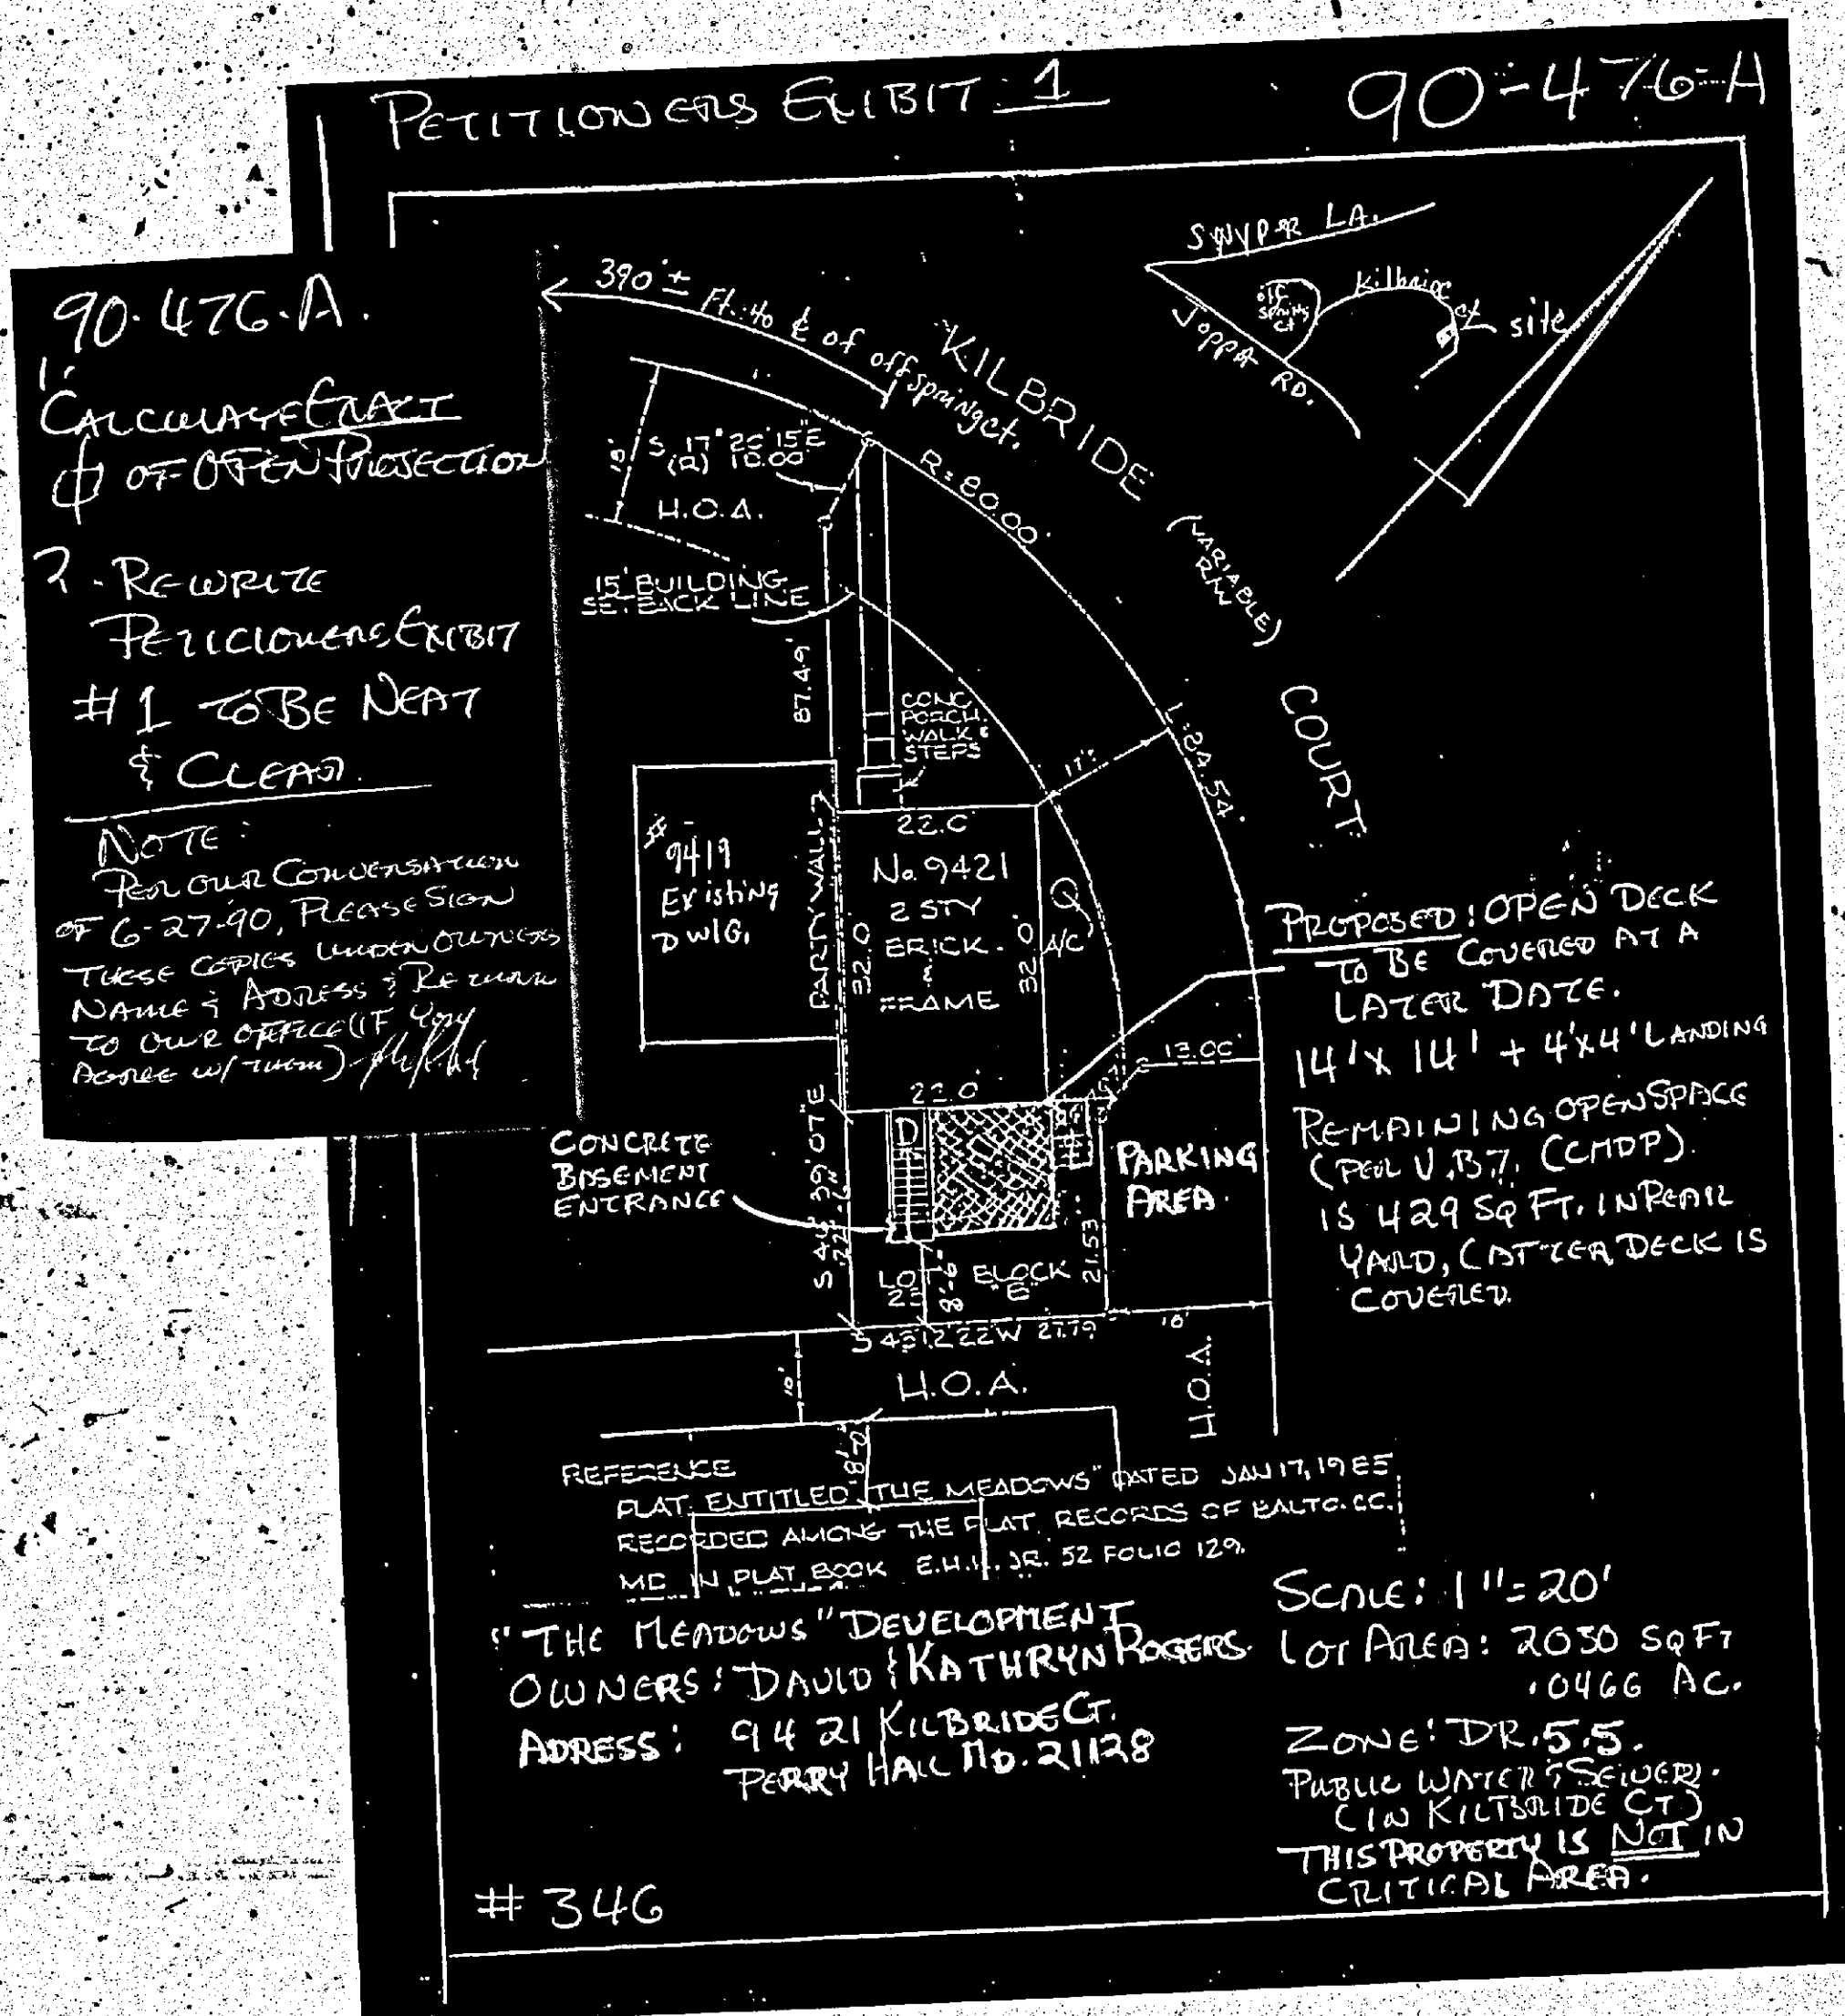 PETITIONERS EXIBIT 1
90-476-A
90-476-A.
1.
CALCULATE EXACT
OF OPEN PROJECTION
2. REWRITE
PETICIONERS EXIBIT
#1 TO BE NEAT
& CLEAR.
NOTE:
PER OUR CONVERSATION
OF 6-27-90, PLEASE SIGN
THESE COPIES UNDER OWNERS
NAME & ADRESS & RETURN
TO OUR OFFICE (IF YOU
AGREE W/ THEM)
390'± Ft. to ℄ of offspring ct.
KILBRIDE COURT
(VARIABLE)
R/W
LA.
JOPPA RD.
Kilbride
ct
site
S 17° 15"E
(R) 10.00'
H.O.A.
15' BUILDING
SETBACK LINE
R=80.00'
87.49'
CONC
PORCH.
WALK &
STEPS
17'±
L=84.54'
22.0'
PARTY WALL
32.0'
No. 9421
2 STY
BRICK
&
FRAME
32.0'
A/C
22.0'
# 9419
Existing
DWLG.
PROPOSED: OPEN DECK
TO BE COVERED AT A
LATER DATE.
14' X 14' + 4'X4' LANDING
REMAINING OPEN SPACE
(PER V.B.7. (CMDP).
IS 429 SQ FT. IN REAR
YARD, (AFTER DECK IS
COVERED.
13.00'
PARKING
AREA.
CONCRETE
BASEMENT
ENTRANCE
39' 07"E
8'-6"
21.53
LOT
BLOCK
"E"
22W 27.79
10'
10'
H.O.A.
H.O.A.
REFERENCE
PLAT ENTITLED "THE MEADOWS" DATED JAN 17, 1985
RECORDED AMONG THE PLAT RECORDS OF BALTO. CO.
MD IN PLAT BOOK E.H.K. JR. 52 FOLIO 129.
"THE MEADOWS" DEVELOPMENT
OWNERS: DAVID & KATHRYN ROGERS.
ADRESS: 9421 KILBRIDE CT.
PERRY HALL MD. 21128
SCALE: 1"=20'
LOT AREA: 2030 SQ FT
.0466 AC.
ZONE: DR.5.5.
PUBLIC WATER & SEWER.
(IN KILTBRIDE CT)
THIS PROPERTY IS NOT IN
CRITICAL AREA.
# 346